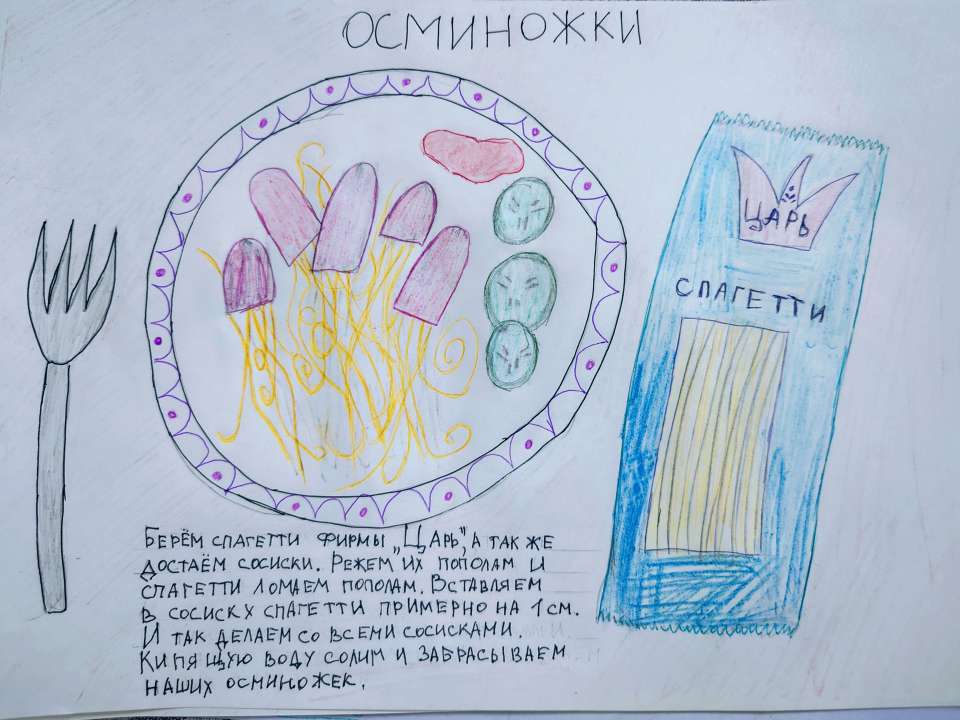 ОСМИНОЖКИ
ЦАРЬ
СПАГЕТТИ
БЕРЁМ СПАГЕТТИ ФИРМЫ „ЦАРЬ", А ТАК ЖЕ
ДОСТАЁМ СОСИСКИ. РЕЖЕМ ИХ ПОПОЛАМ И
СПАГЕТТИ ЛОМАЕМ ПОПОЛАМ. ВСТАВЛЯЕМ
В СОСИСКХ СПАГЕТТИ ПРИМЕРНО НА 1 СМ.
И ТАК ДЕЛАЕМ СО ВСЕМИ СОСИСКАМИ.
КИПЯЩУЮ ВОДУ СОЛИМ И ЗАБРАСЫВАЕМ
НАШИХ ОСМИНОЖЕК.